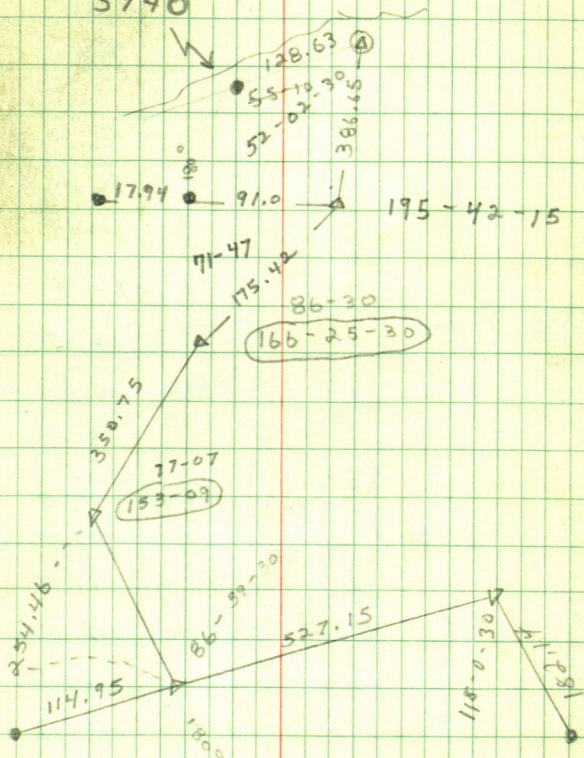 5740
128.63
55-10-30
52-02-30
386.65
180°
17.94 91.0 195-42-15
71-47
175.42
86-30
166-25-30
350.75
77-07
153-09
254.46
86-59-30
527.15
114.95
1800
118-0-30